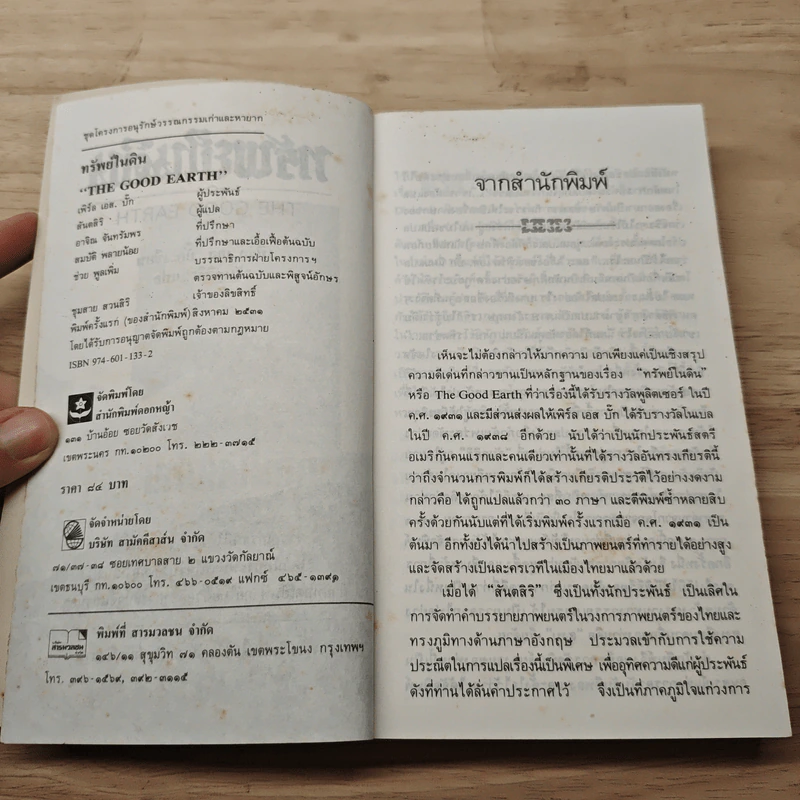 ชุดโครงการอนุรักษ์วรรณกรรมเก่าและหายาก
ทรัพย์ในดิน
“THE GOOD EARTH”
เพิร์ล เอส. บั๊ก ผู้ประพันธ์
สันตสิริ ผู้แปล
อาจิณ จันทรัมพร ที่ปรึกษา
สมบัติ พลายน้อย ที่ปรึกษาและเอื้อเฟื้อต้นฉบับ
ช่วย พูลเพิ่ม บรรณาธิการฝ่ายโครงการฯ
ตรวจทานต้นฉบับและพิสูจน์อักษร
ชุมสาย สวนสิริ เจ้าของลิขสิทธิ์
พิมพ์ครั้งแรก (ของสำนักพิมพ์) สิงหาคม ๒๕๓๑
โดยได้รับการอนุญาตจัดพิมพ์ถูกต้องตามกฎหมาย
ISBN 974-601-133-2
จัดพิมพ์โดย
สำนักพิมพ์ดอกหญ้า
๑๓๑ บ้านอ้อย ซอยวัดสังเวช
เขตพระนคร กท.๑๐๒๐๐ โทร. ๒๒๒-๓๗๑๕
ราคา ๘๔ บาท
จัดจำหน่ายโดย
บริษัท สามัคคีสาส์น จำกัด
๗๑/๓๗-๓๘ ซอยเทศบาลสาย ๒ แขวงวัดกัลยาณ์
เขตธนบุรี กท.๑๐๖๐๐ โทร. ๔๖๖-๐๕๑๙ แฟกซ์ ๔๖๕-๑๓๙๑
สารมวลชน
พิมพ์ที่ สารมวลชน จำกัด
๑๔๖/๑๑ สุขุมวิท ๗๑ คลองตัน เขตพระโขนง กรุงเทพฯ
โทร. ๓๙๖-๑๕๖๙, ๓๙๒-๓๑๑๕
จากสำนักพิมพ์
เห็นจะไม่ต้องกล่าวให้มากความ เอาเพียงแค่เป็นเชิงสรุป
ความดีเด่นที่กล่าวขานเป็นหลักฐานของเรื่อง “ทรัพย์ในดิน”
หรือ The Good Earth ที่ว่าเรื่องนี้ได้รับรางวัลพูลิตเซอร์ ในปี
ค.ศ. ๑๙๓๑ และมีส่วนส่งผลให้เพิร์ล เอส บั๊ก ได้รับรางวัลโนเบล
ในปี ค.ศ. ๑๙๓๘ อีกด้วย นับได้ว่าเป็นนักประพันธ์สตรี
อเมริกันคนแรกและคนเดียวเท่านั้นที่ได้รางวัลอันทรงเกียรตินี้
ว่าถึงจำนวนการพิมพ์ก็ได้สร้างเกียรติประวัติไว้อย่างงดงาม
กล่าวคือ ได้ถูกแปลแล้วกว่า ๓๐ ภาษา และตีพิมพ์ซ้ำหลายสิบ
ครั้งด้วยกันนับแต่ที่ได้เริ่มพิมพ์ครั้งแรกเมื่อ ค.ศ. ๑๙๓๑ เป็น
ต้นมา อีกทั้งยังได้นำไปสร้างเป็นภาพยนตร์ที่ทำรายได้อย่างสูง
และจัดสร้างเป็นละครเวทีในเมืองไทยมาแล้วด้วย
เมื่อได้ “สันตสิริ” ซึ่งเป็นทั้งนักประพันธ์ เป็นเลิศใน
การจัดทำคำบรรยายภาพยนตร์ในวงการภาพยนตร์ของไทยและ
ทรงภูมิทางด้านภาษาอังกฤษ ประมวลเข้ากับการใช้ความ
ประณีตในการแปลเรื่องนี้เป็นพิเศษ เพื่ออุทิศความดีแก่ผู้ประพันธ์
ดังที่ท่านได้ลั่นคำประกาศไว้ จึงเป็นที่ภาคภูมิใจแก่วงการ